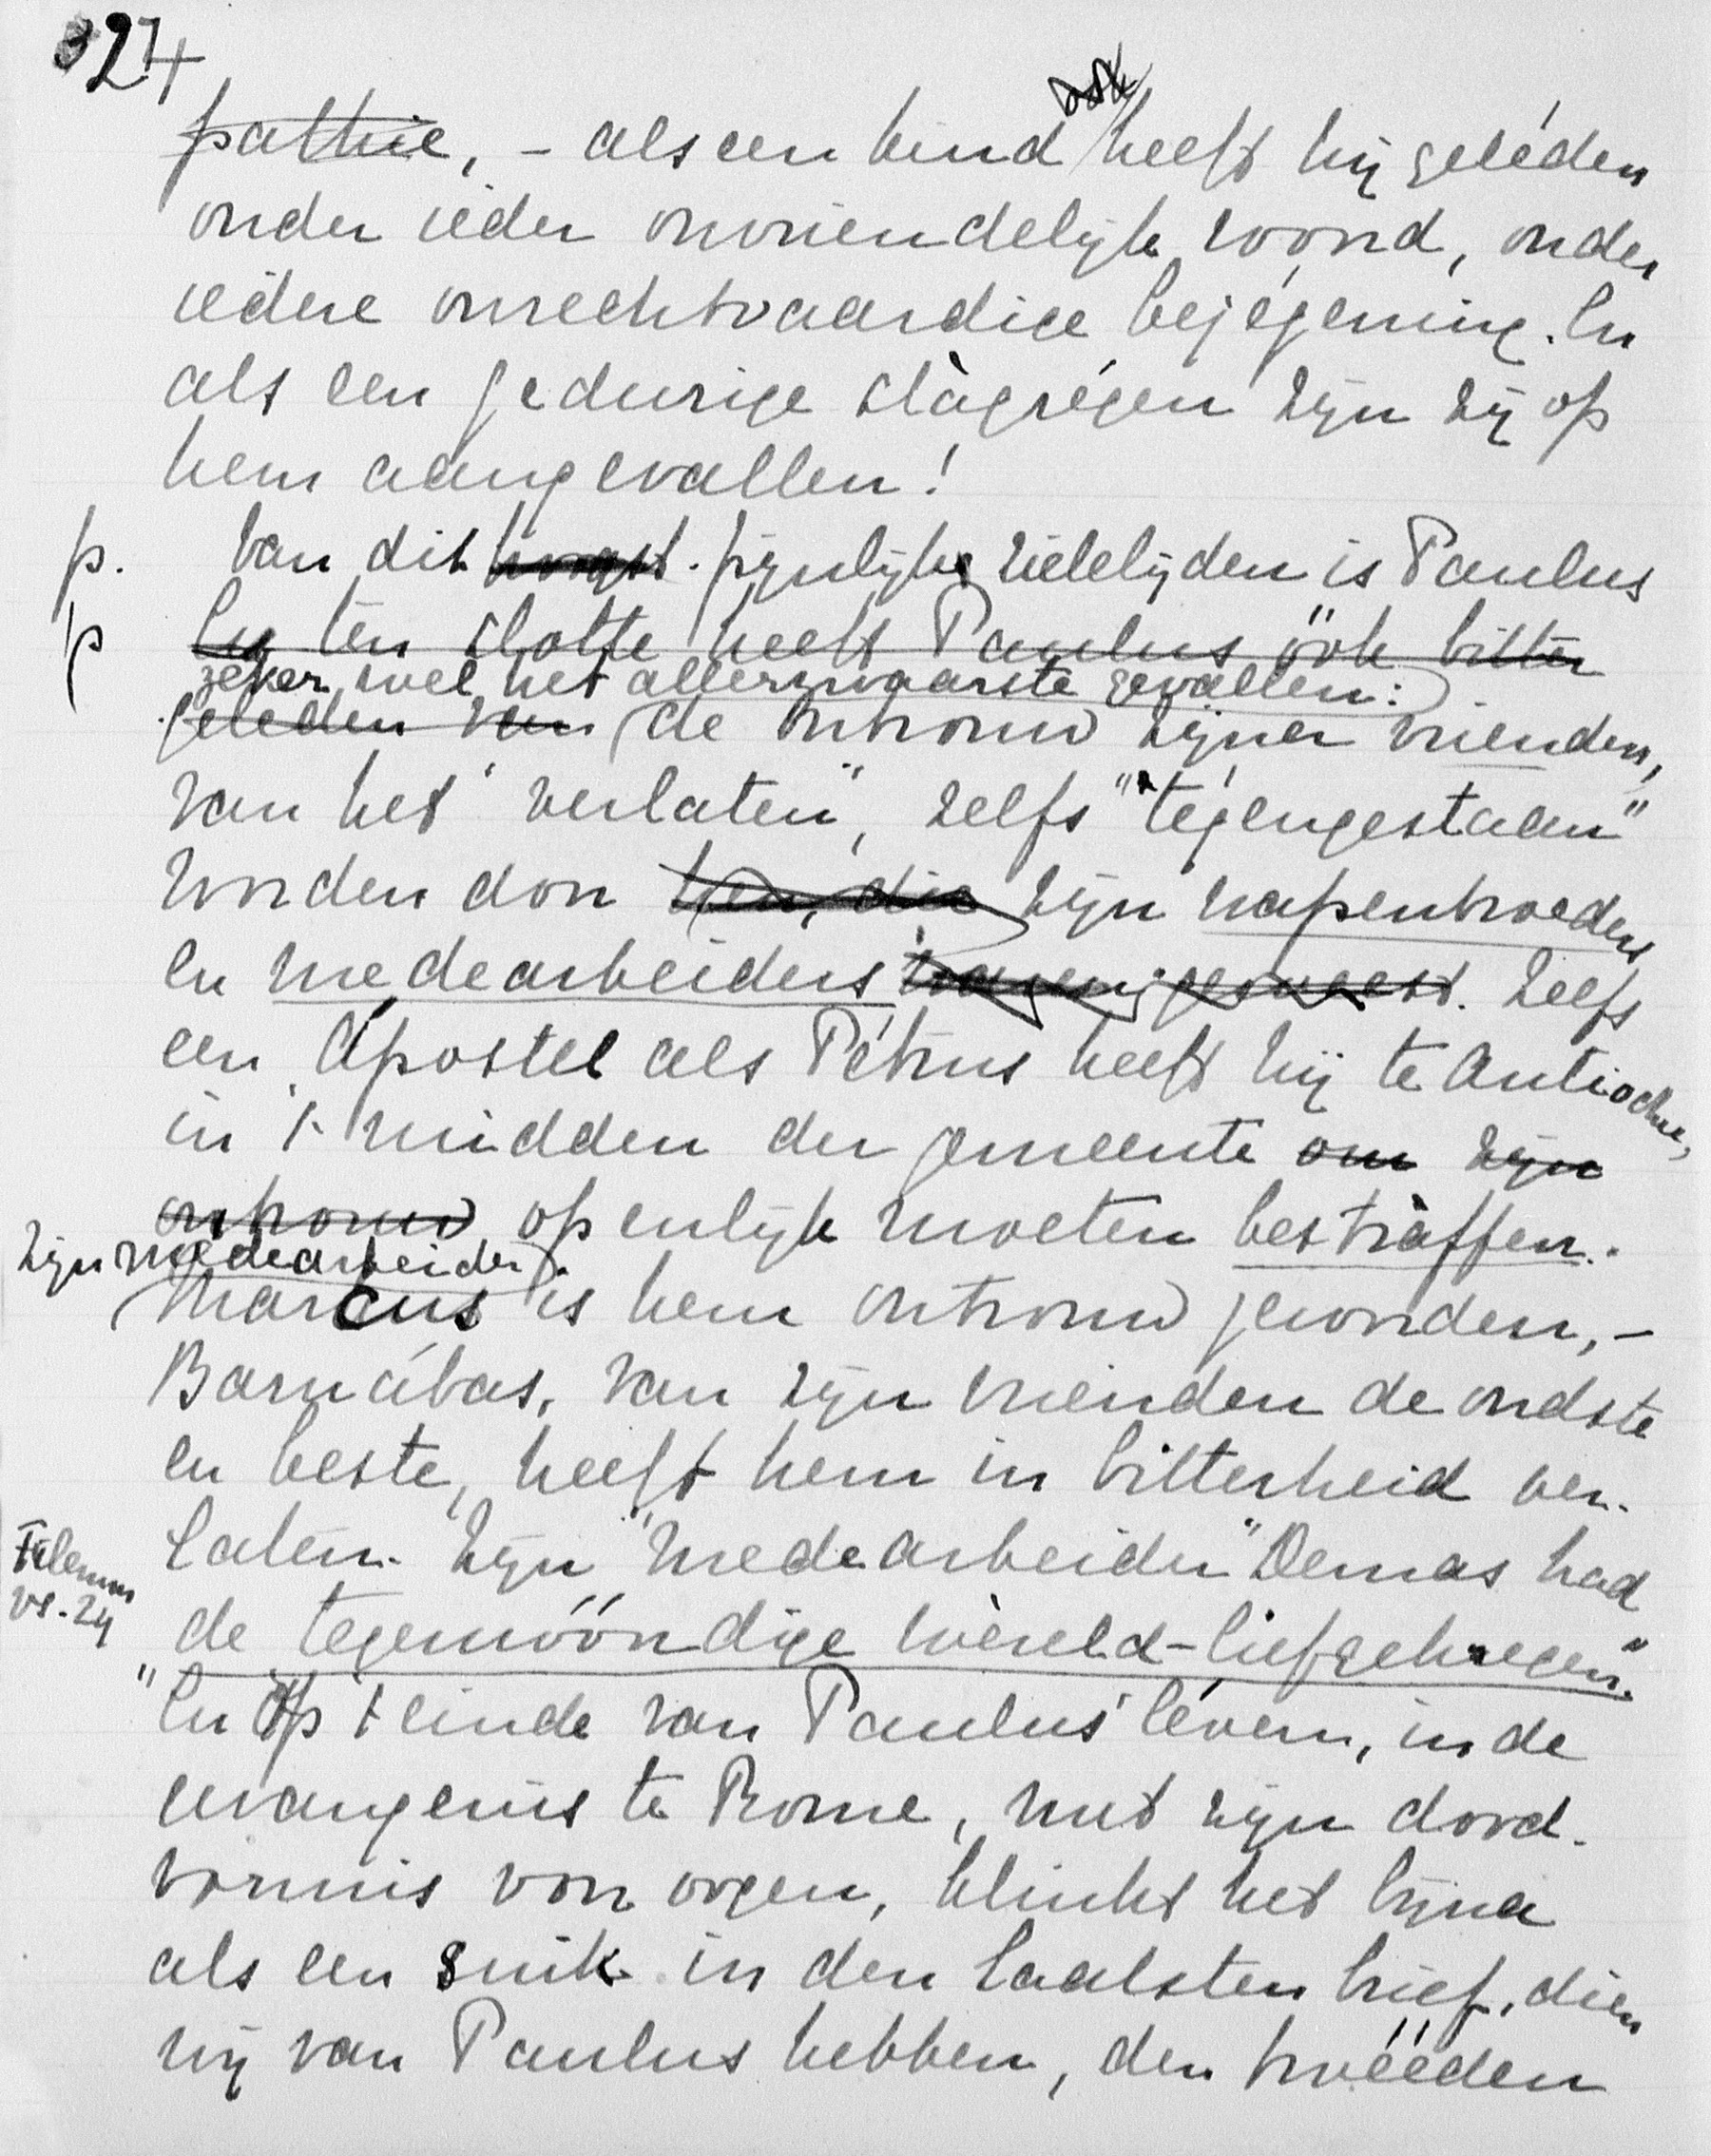 324
pathie, – als een kind ook heeft hij geléden
onder ieder onvriendelijk woord, onder
iedere onrechtvaardige bejégening. En
als een gedurige slàgrégen zijn zij op
hem aangevallen!
p. Van dit pijnlijke zielelijden is Paulus
p En ten slotte heeft Paulus óók bitter
zeker wel het allerzwaarste gevallen:
geleden van de ontrouw zijner vrienden,
van het "verlaten", zelfs "tégengestaan"
worden door hen, die zijn wapenbroeders
en medearbeiders waren geweest. Zelfs
een Apostel als Pétrus heeft hij te Antiochië,
in 't midden der gemeente om zijn
ontrouw openlijk moeten bestràffen.
zijn medearbeider
Marcus is hem ontrouw geworden, –
Barnábas, van zijn vrienden de oudste
en beste, heeft hem in bitterheid ver-
laten. Zijn "medearbeider" Demas had
Filemon
vs. 24
de tegenwóórdige wèreld liefgekregen."
"En op 't einde van Paulus' léven, in de
gevangenis te Rome, met zijn dood-
vonnis voor oogen, klinkt het bijna
als een snik in den laatsten brief, dien
wij van Paulus hebben, den twééden